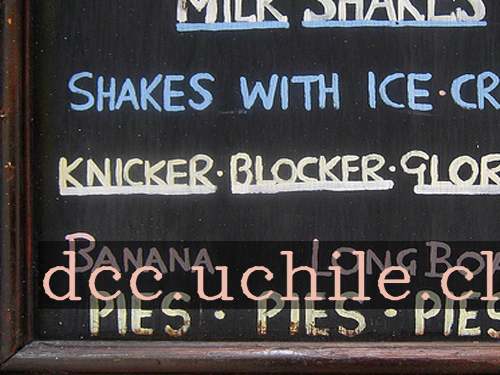 MILK SHAKES
SHAKES WITH ICE·CR
KNICKER·BLOCKER·GLOR
BANANA LONG BOA
dcc.uchile.cl
PIES · PIES · PIES